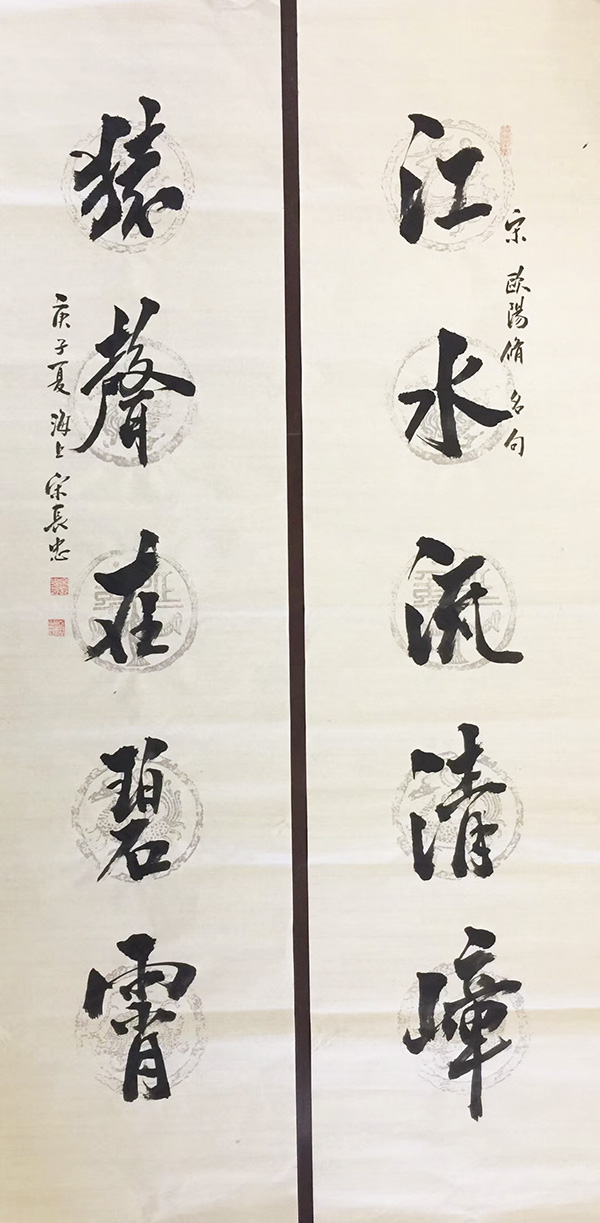 江水流清嶂
宋 歐陽脩 名句
猿聲在碧霄
庚子夏 海上 宋長忠